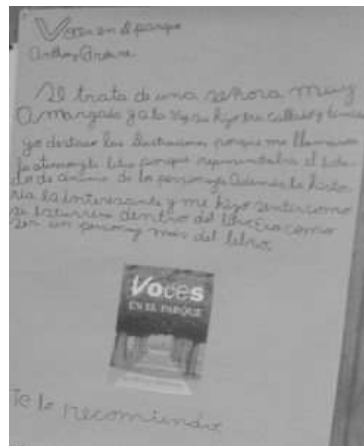 Voces en el parque
Anthony Browne
Se trata de una señora muy
amargada y a la vez su hijo era callado y timido
yo destaco las ilustraciones porque me llamaron
la atencion y la libro porque representaba el esta-
do de animo de los personajes Además la histo-
ria es interesante y me hizo sentir como
si estuviera dentro del libro Era como
ser un personaje mas del libro.
Voces
EN EL PARQUE
Te lo recomiendo